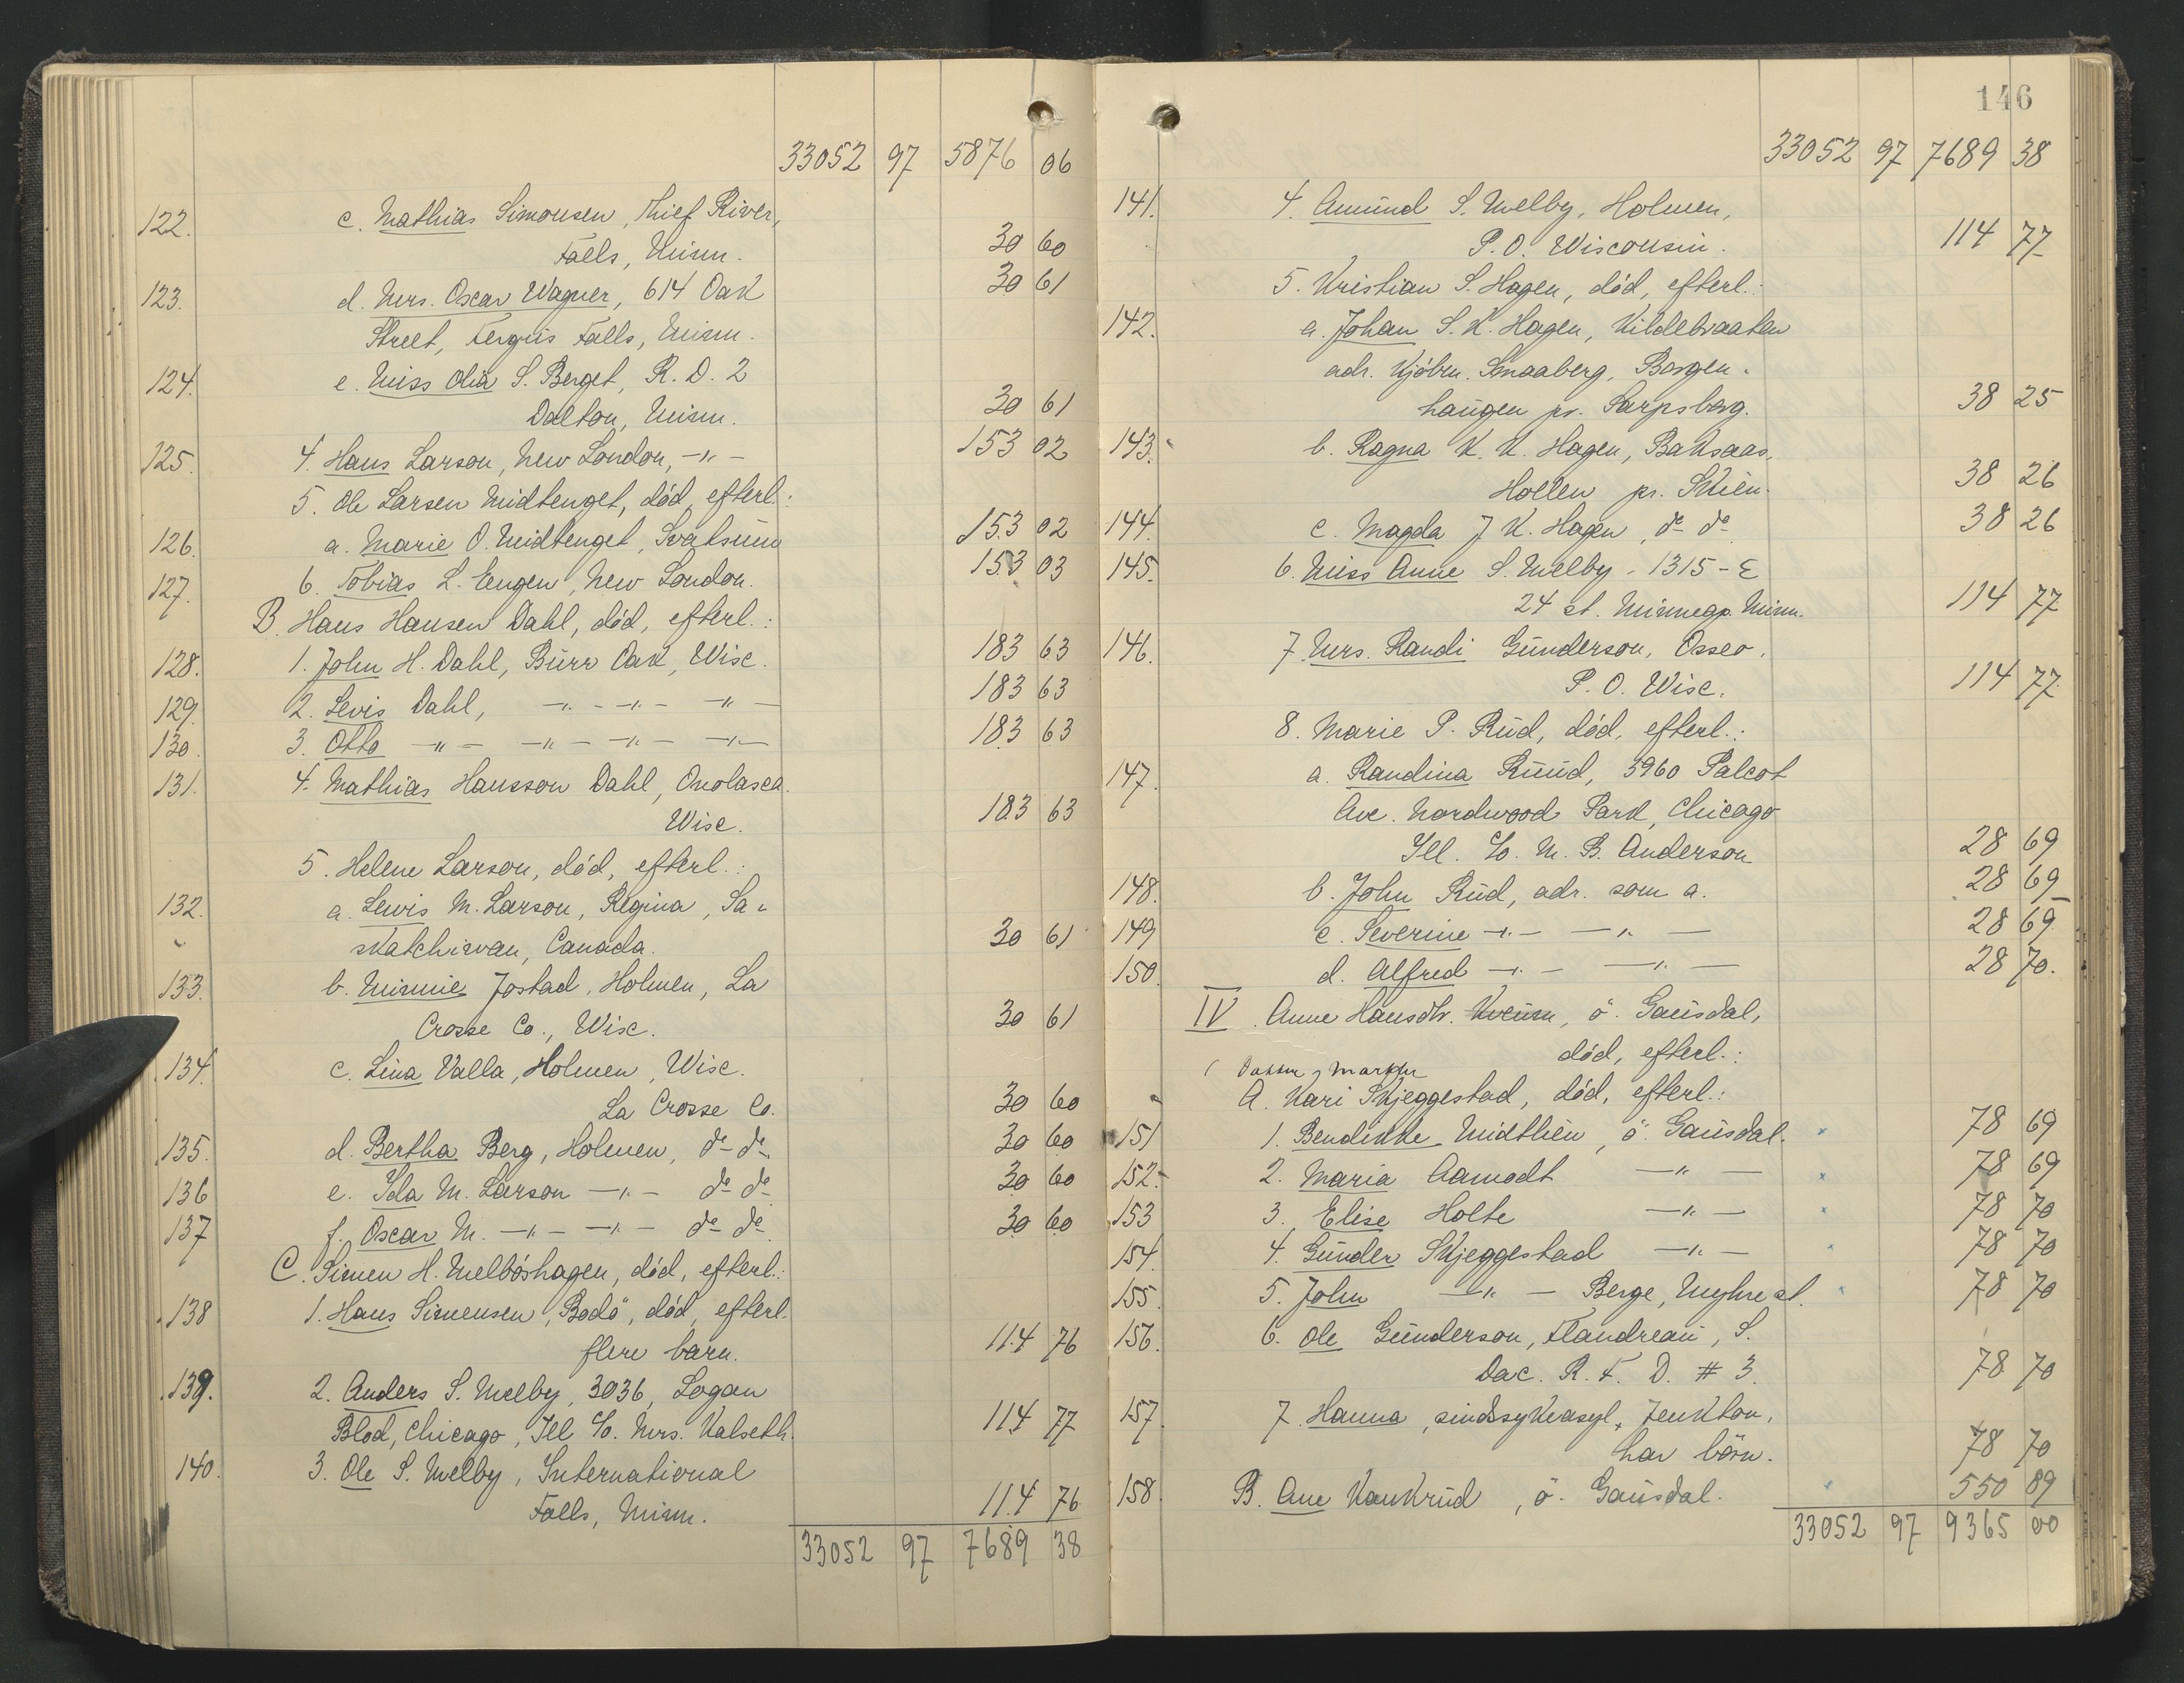 33052 97 5876 06
122. c. Mathias Simonsen, Thief River,
Falls, Minn. 30 60
123. d. Mrs. Oscar Wagner, 614 Oak 30 61
Street, Fergus Falls, Minn.
124. e. Miss Olia S. Berget, R. D. 2
Dalton, Minn. 30 61
125. 4. Hans Larson, New London, -"- 153 02
5. Ole Larsen Midtenget, död, efterl.:
126. a. Marie O. Midtenget, Svatsum 153 02
127. 6. Tobias L. Engen, New London. 153 03
B. Hans Hansen Dahl, död, efterl.:
128. 1. John H. Dahl, Burr Oak, Wisc. 183 63
129. 2. Levis Dahl, -"- -"- -"- 183 63
130. 3. Otto -"- -"- -"- -"- 183 63
131. 4. Mathias Hansson Dahl, Onolasca.
Wisc. 183 63
5. Helene Larson, död, efterl.:
132. a. Lewis M. Larson, Regina, Sa-
skatchiwan, Canada. 30 61
133. b. Minnie Jostad, Holmen, La
Crosse Co., Wisc. 30 61
134. c. Lina Valla, Holmen, Wisc.
La Crosse Co. 30 60
135. d. Bertha Berg, Holmen, do do 30 60
136 e. Ida M. Larson -"- do do 30 60
137 f. Oscar M. -"- -"- do do. 30 60
C. Simen H. Melböshagen, död, efterl.:
138 1. Hans Simensen, Bodö, död, efterl.
flere barn. 114 76
139. 2. Anders S. Melby, 3036, Logan
Blod, Chicago, Ill c/o. Mrs. Kalseth. 114 77
140. 3. Ole S. Melby, International
Falls, Minn. 114 76
33052 97 7689 38
146
33052 97 7689 38
141. 4. Amund S. Melby, Holmen,
P.O. Wisconsin. 114 77
5. Kristian S. Hagen, död, efterl.:
142. a. Johan S. K. Hagen, Kildebraaten
adr. Kjöbm. Smaaberg, Borgen-
haugen pr. Sarpsborg. 38 25
143. b. Ragna K. K. Hagen, Baksaas,
Hollen pr. Skien. 38 26
144. c. Magda J K. Hagen, do do. 38 26
145. 6. Miss Anne S. Melby, 1315-E
24 st. Minneap. Minn. 114 77
146. 7. Mrs. Randi Gunderson, Osseo,
P. O. Wisc. 114 77
8. Marie P. Rud, död, efterl.:
147. a. Randina Ruud, 5960 Palcot
Ave. Nordwood Park, Chicago
Ill. c/o. M. B. Anderson 28 69
148. b. John Rud, adr. som a. 28 69
149 c. Severine -"- -"- 28 69
150. d. Alfred -"- -"- 28 70.
IV. Anne Hansdtr. Kveum, ö. Gausdal,
död, efterl.:
A. Kari Skjeggestad, död, efterl.:
151 1. Bendikke Midtlien, ö. Gausdal. 78 69
152. 2. Maria Aamodt -"- 78 69
153 3. Elise Holte -"- 78 70
154. 4. Gunder Skjeggestad -"- 78 70
155. 5. John -"- Berge, Myhre st. 78 70
156. 6. Ole Gunderson, Flandreau, S.
Dac. R. F. D. # 3. 78 70
157. 7. Hanna, sindsykeasyl, Jenkton,
har börn. 78 70
158. B. Ane Kankrud, ö. Gausdal. 550 89
33052 97 9365 00